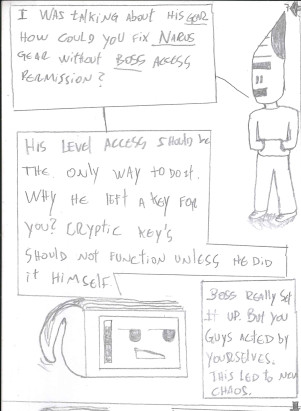 I WAS TALKING ABOUT HIS GEAR
HOW COULD YOU FIX NARUS
GEAR WITHOUT BOSS ACCESS
PERMISSION?
HIS LEVEL ACCESS SHOULD BE
THE ONLY WAY TO DO IT.
WHY HE LEFT A KEY FOR
YOU? CRYPTIC KEY'S
SHOULD NOT FUNCTION UNLESS HE DID
IT HIMSELF
BOSS REALLY SET
IT UP. BUT YOU
GUYS ACTED BY
YOURSELVES.
THIS LED TO NEW
CHAOS.